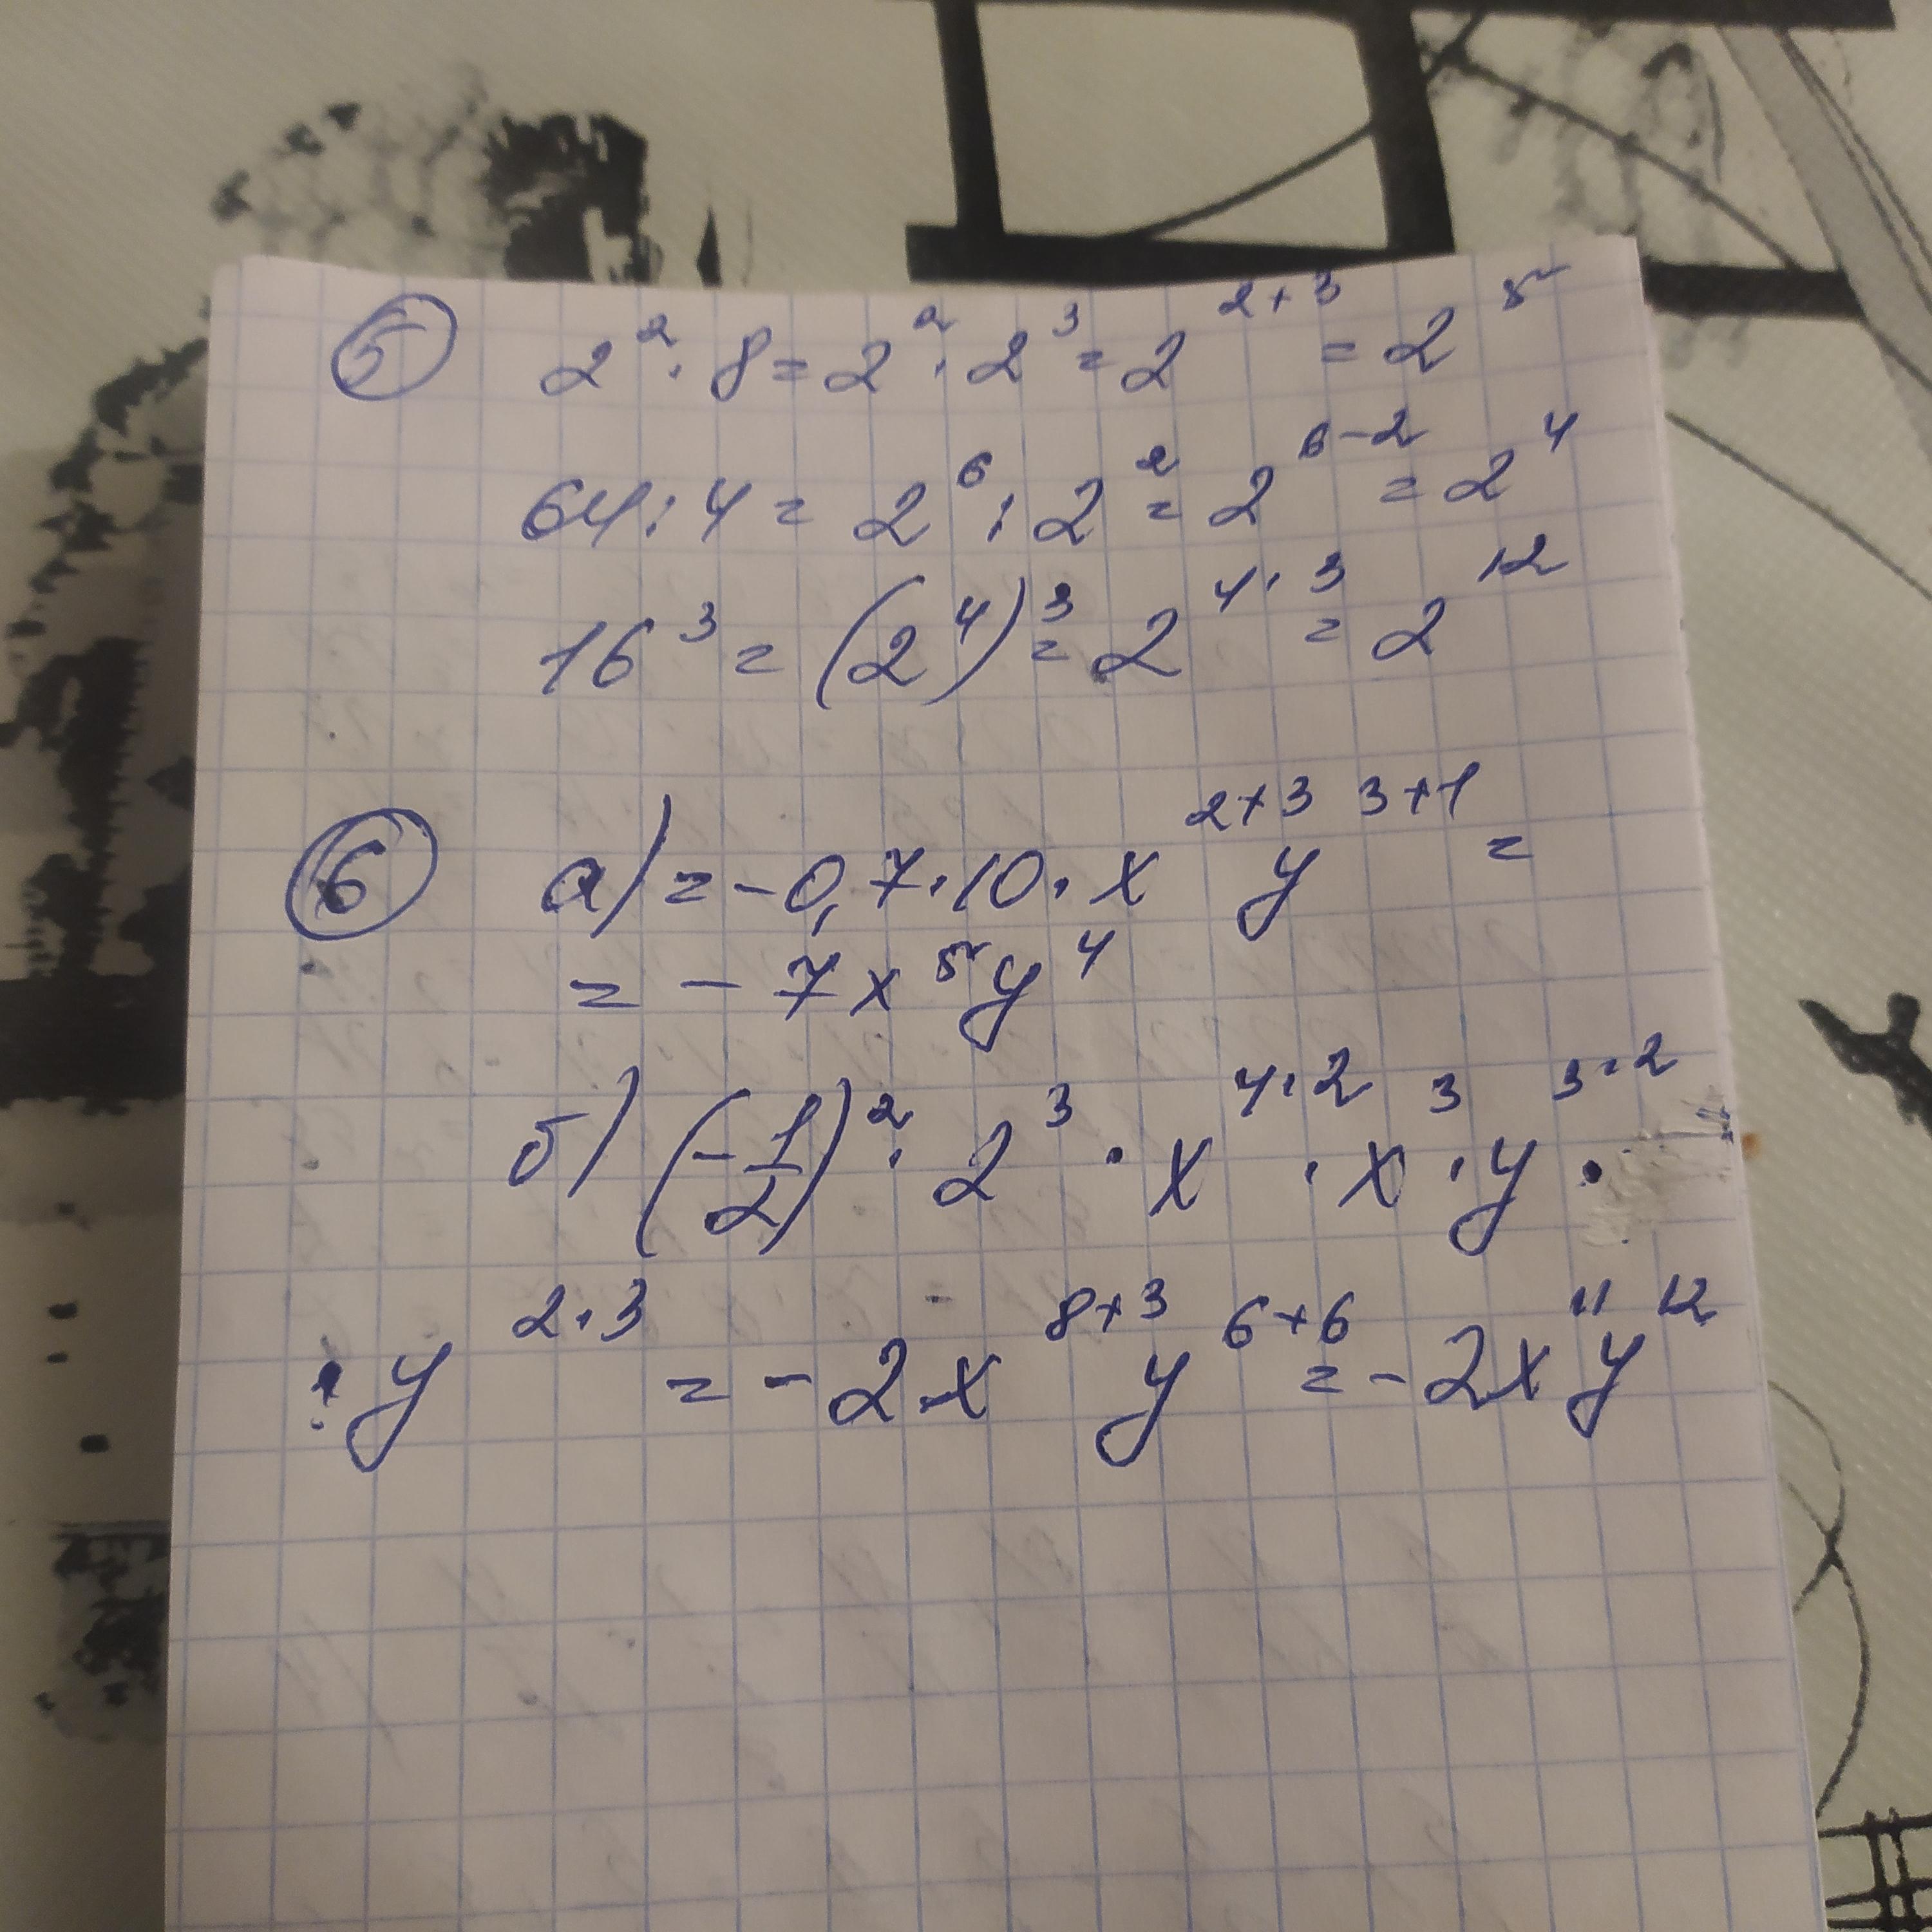 5 2² · 8 = 2² · 2³ = 2²⁺³ = 2⁵
64 : 4 = 2⁶ : 2² = 2⁶⁻² = 2⁴
16³ = (2⁴)³ = 2^(4·3) = 2¹²
6 а) = -0,7 · 10 · x²⁺³ y³⁺¹ =
= -7x⁵y⁴
б) (-1/2)² · 2³ · x^(4·2) · x³ · y^(3·2) ·
· y^(2·3) = -2x⁸⁺³ y⁶⁺⁶ = -2x¹¹y¹²